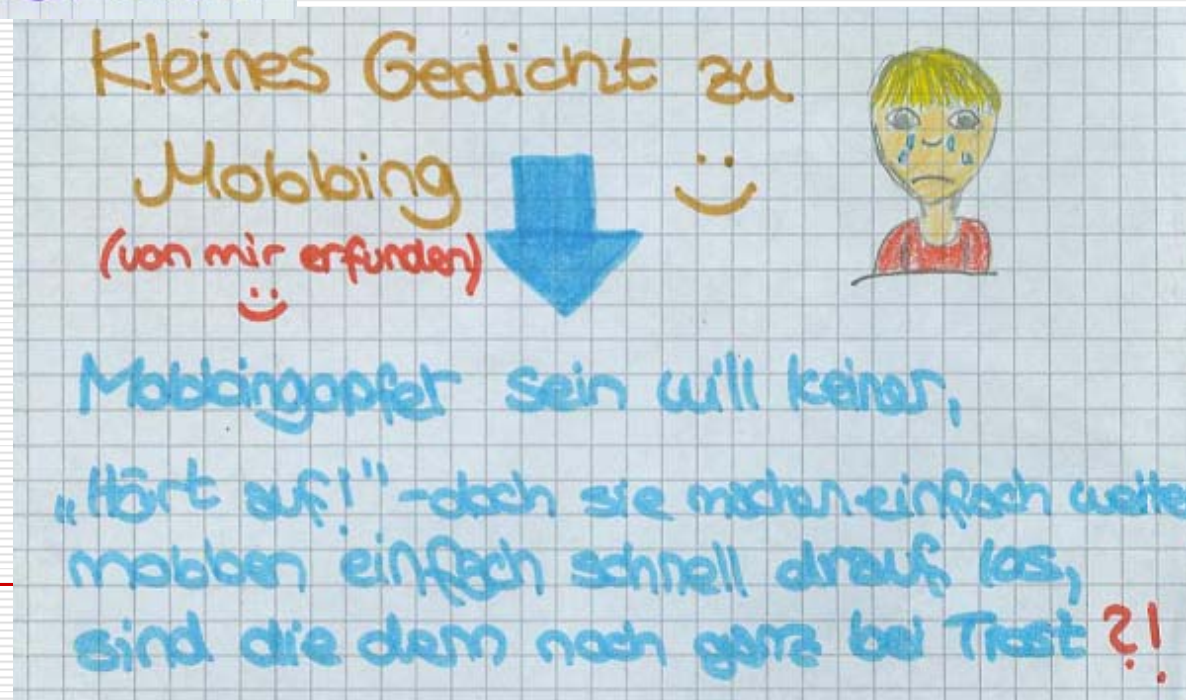 Kleines Gedicht zu
Mobbing
(von mir erfunden)
Mobbingopfer sein will keiner,
„Hört auf!" - doch sie machen einfach weite
mobben einfach schnell drauf los,
sind die denn noch ganz bei Trost ?!